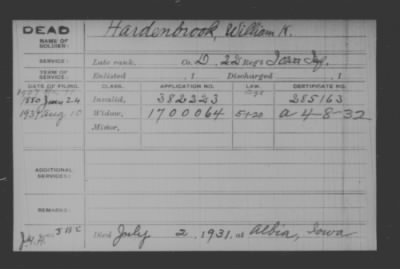 DEAD
NAME OF SOLDIER:
Hardenbrook, William K.
SERVICE:
Late rank, Co. D, 22 Reg't Iowa Inf.
TERM OF SERVICE:
Enlisted , 1 Discharged , 1
DATE OF FILING. CLASS. APPLICATION NO. LAW. CERTIFICATE NO.
1880 June 24 Invalid, 382323 285163
1931 Aug 10 Widow, 1700064 5-1-20 a 4-8-32
Minor,
ADDITIONAL SERVICES:
REMARKS:
Died July 2, 1931, at Albia, Iowa